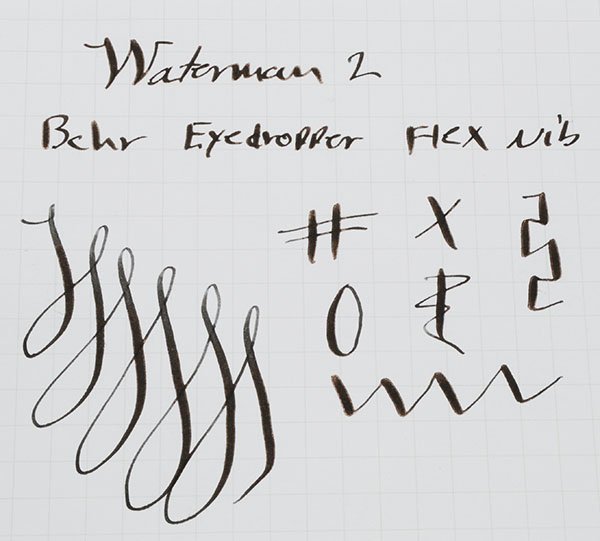 Waterman 2
Behr Eyedropper Flex Nib
# X